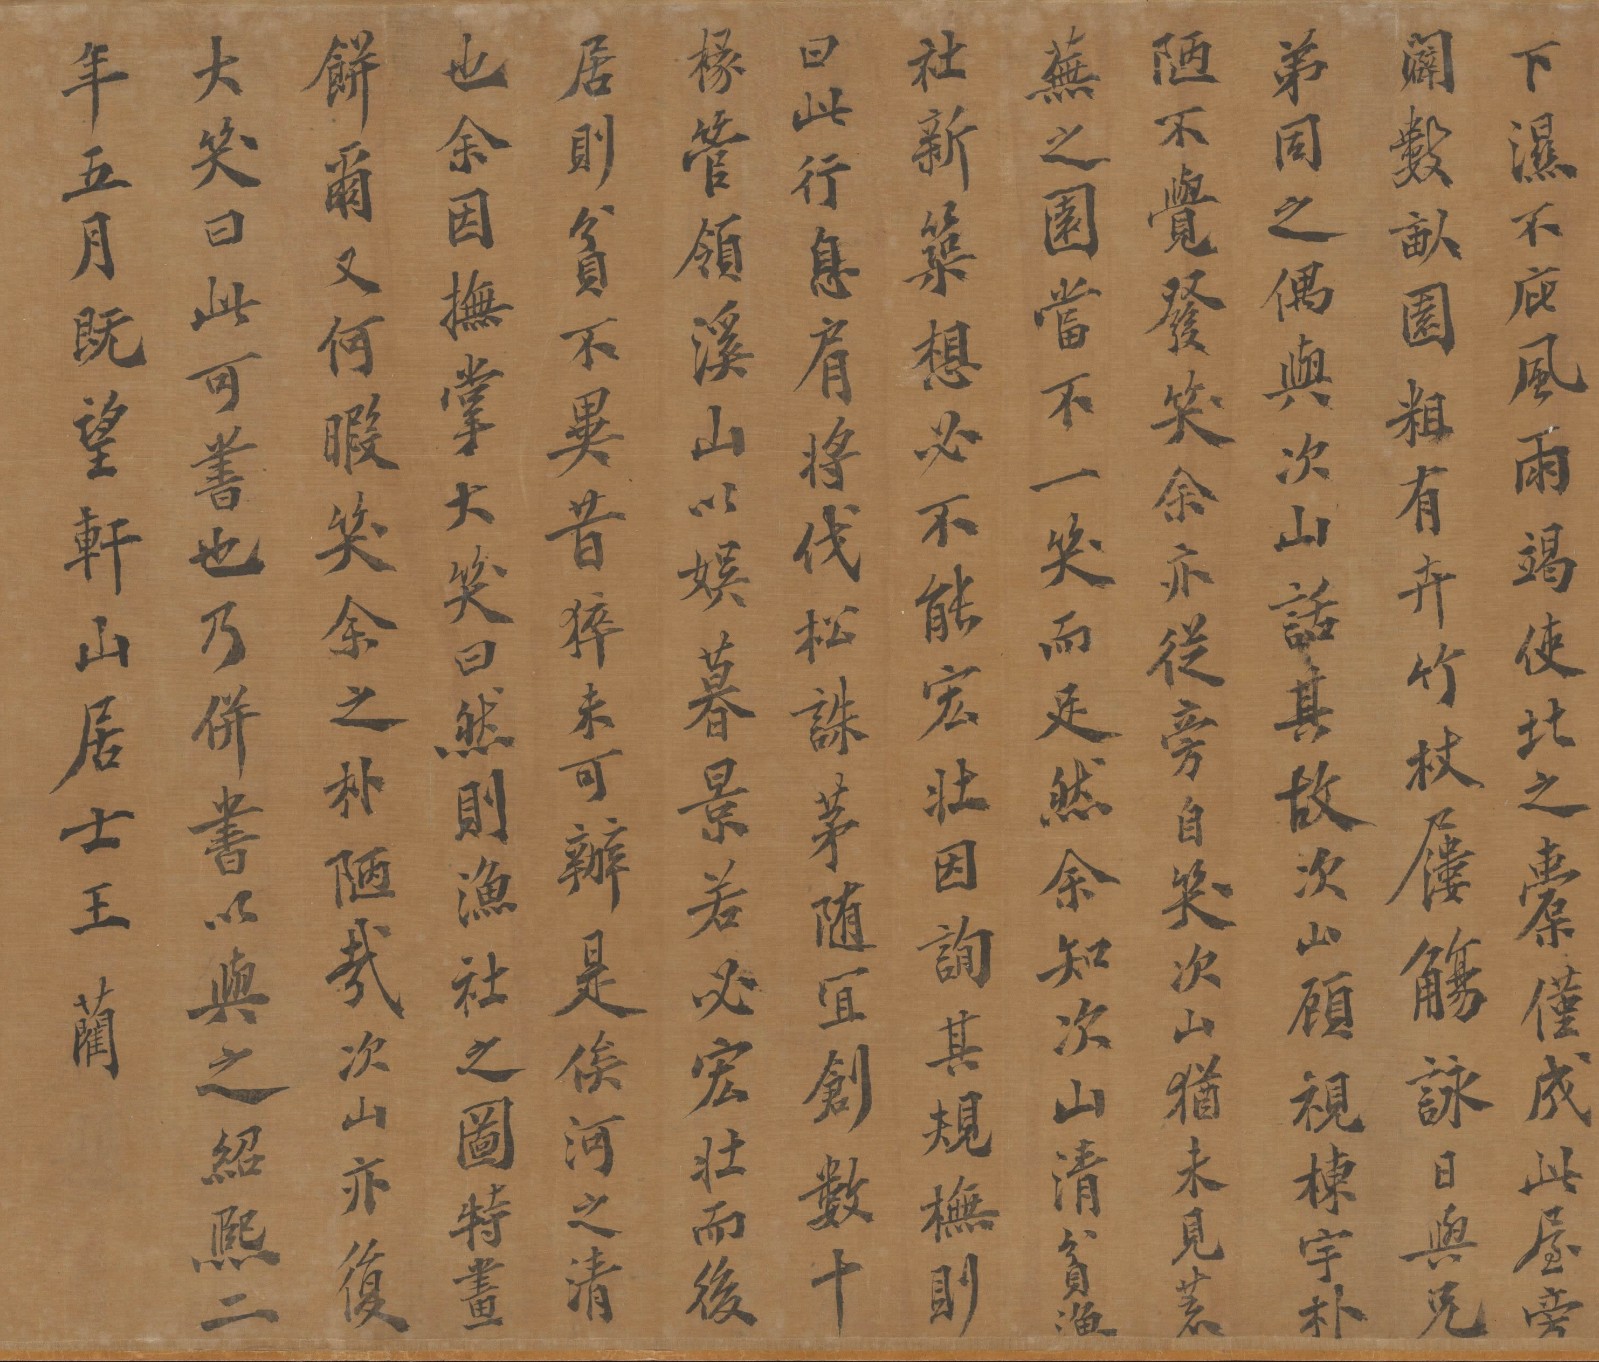 下濕不庇風雨竭使北之橐僅成此屋旁
闢數畝園粗有卉竹杖屨觴詠日與兄
弟同之偶與次山話其故次山顧視棟宇朴
陋不覺發笑余亦從旁自笑次山猶未見荒
蕪之園當不一笑而足然余知次山清貧漁
社新築想必不能宏壯因詢其規橅則
曰此行息肩將伐松誅茅隨宜創數十
椽管領溪山以娛暮景若必宏壯而後
居則貧不異昔猝未可辦是俟河之清
也余因撫掌大笑曰然則漁社之圖特畫
餅爾又何暇笑余之朴陋哉次山亦復
大笑曰此可書也乃併書以與之紹熙二
年五月既望軒山居士王藺